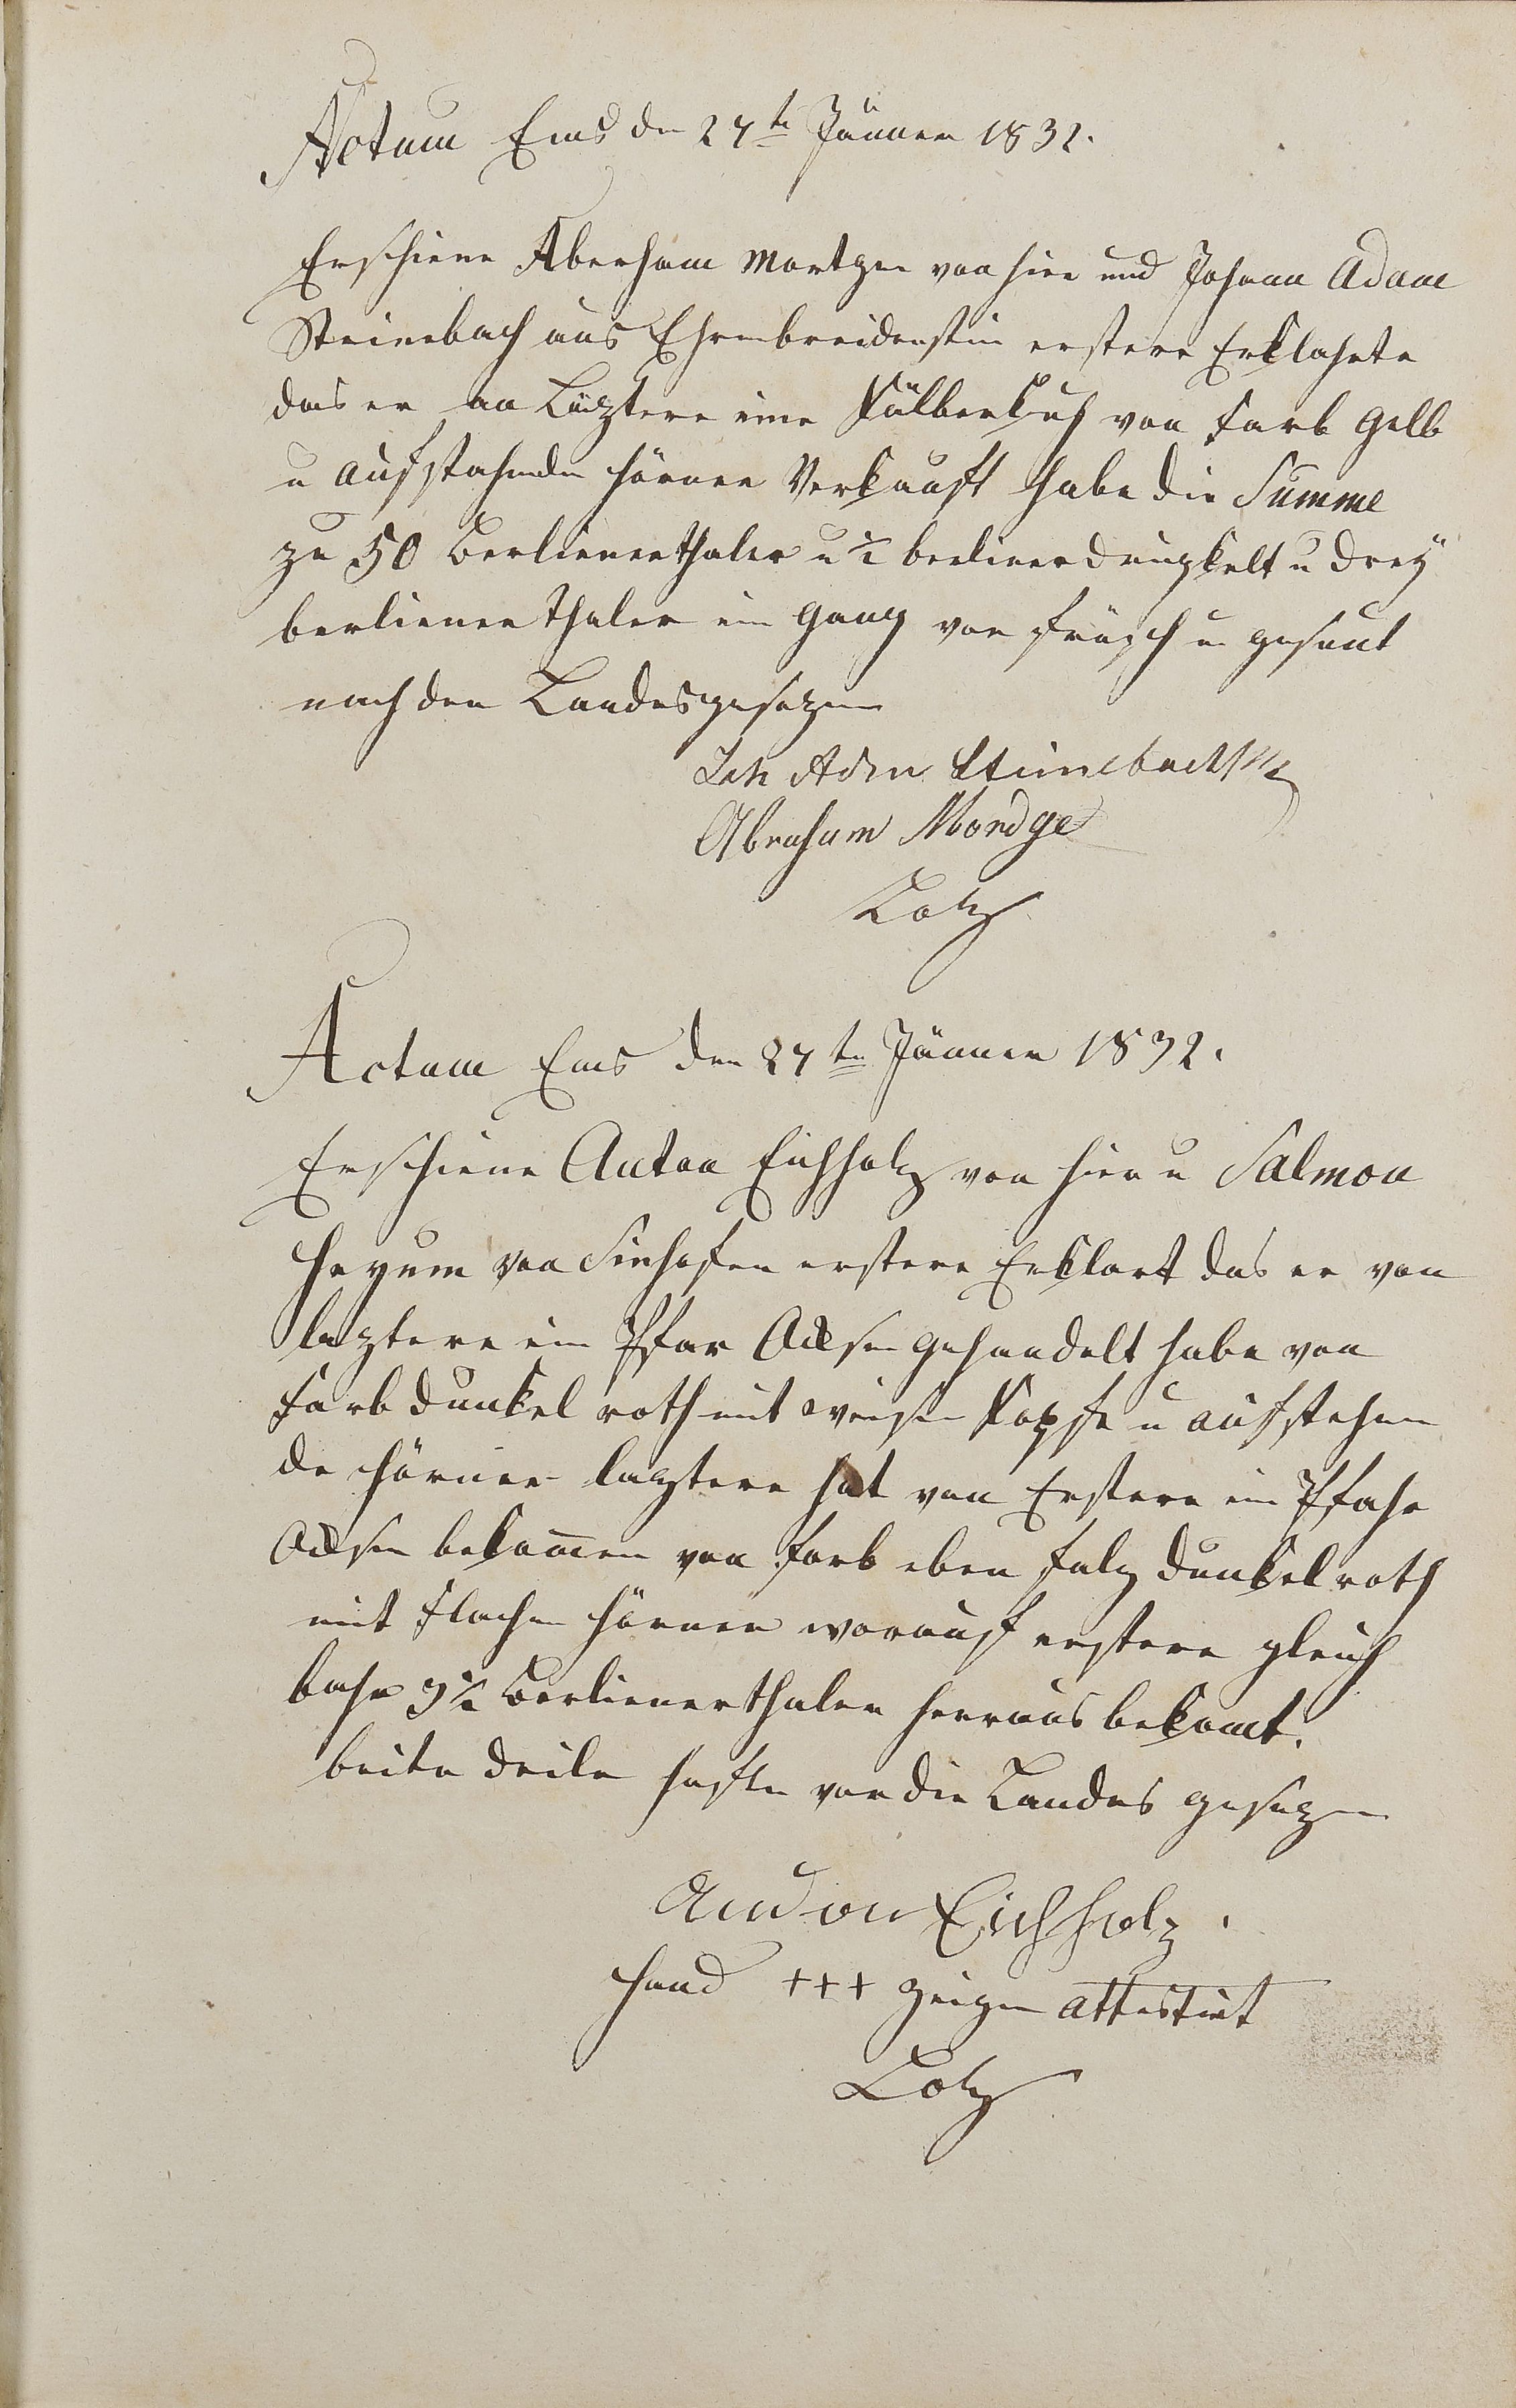 Actum Ems den 27te Jänner 1832.
Erschiene Aberham Mortge von hier und Johann Adam
Steinebach aus Ehrenbreidenstein erstere Erklahrte
das er an Läztere eine Kälberkuh von farb gelb
u aufstehenden hörner Verkauft habe die Summe
zu 50 Berlienerthaler u ½ berliner drinzkelt u drey
berlienerthaler in gang vor frisch u gesunt
nach den Landesgesezen
Joh Adm Steinebach
Abraham Mordge
Lotz
Actum Ems den 27ten Jänner 1832.
Erschiene Anton Eichholz von hier u Salmon
Heyum von Sinhofen erstere Erklart das er von
leztere ein Pfar Ocksen gehandelt habe von
farb dunkel roth mit weisen Kopfe u aufstehen
de hörner leztere hat von Erstere ein Pfahr
Ocksen bekomen von farb eben falz dunkel roth
mit flachen hörner worauf erstere gleich
bahr 3½ Berlienerthaler herraus bekomt.
beite deile haften vor die Landes gesezen
Andon Eichholz.
Hand +++ Zeigen attestirt
Lotz